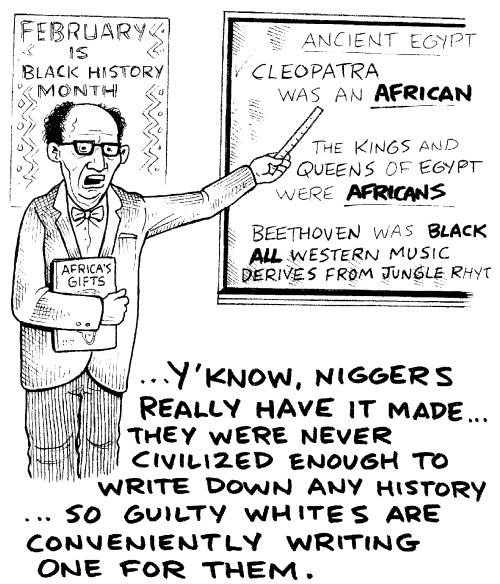 FEBRUARY
IS
BLACK HISTORY
MONTH
ANCIENT EGYPT
CLEOPATRA
WAS AN AFRICAN
THE KINGS AND
QUEENS OF EGYPT
WERE AFRICANS
BEETHOVEN WAS BLACK
ALL WESTERN MUSIC
DERIVES FROM JUNGLE RHYT
AFRICA'S
GIFTS
...Y'KNOW, NIGGERS
REALLY HAVE IT MADE...
THEY WERE NEVER
CIVILIZED ENOUGH TO
WRITE DOWN ANY HISTORY
... SO GUILTY WHITES ARE
CONVENIENTLY WRITING
ONE FOR THEM.